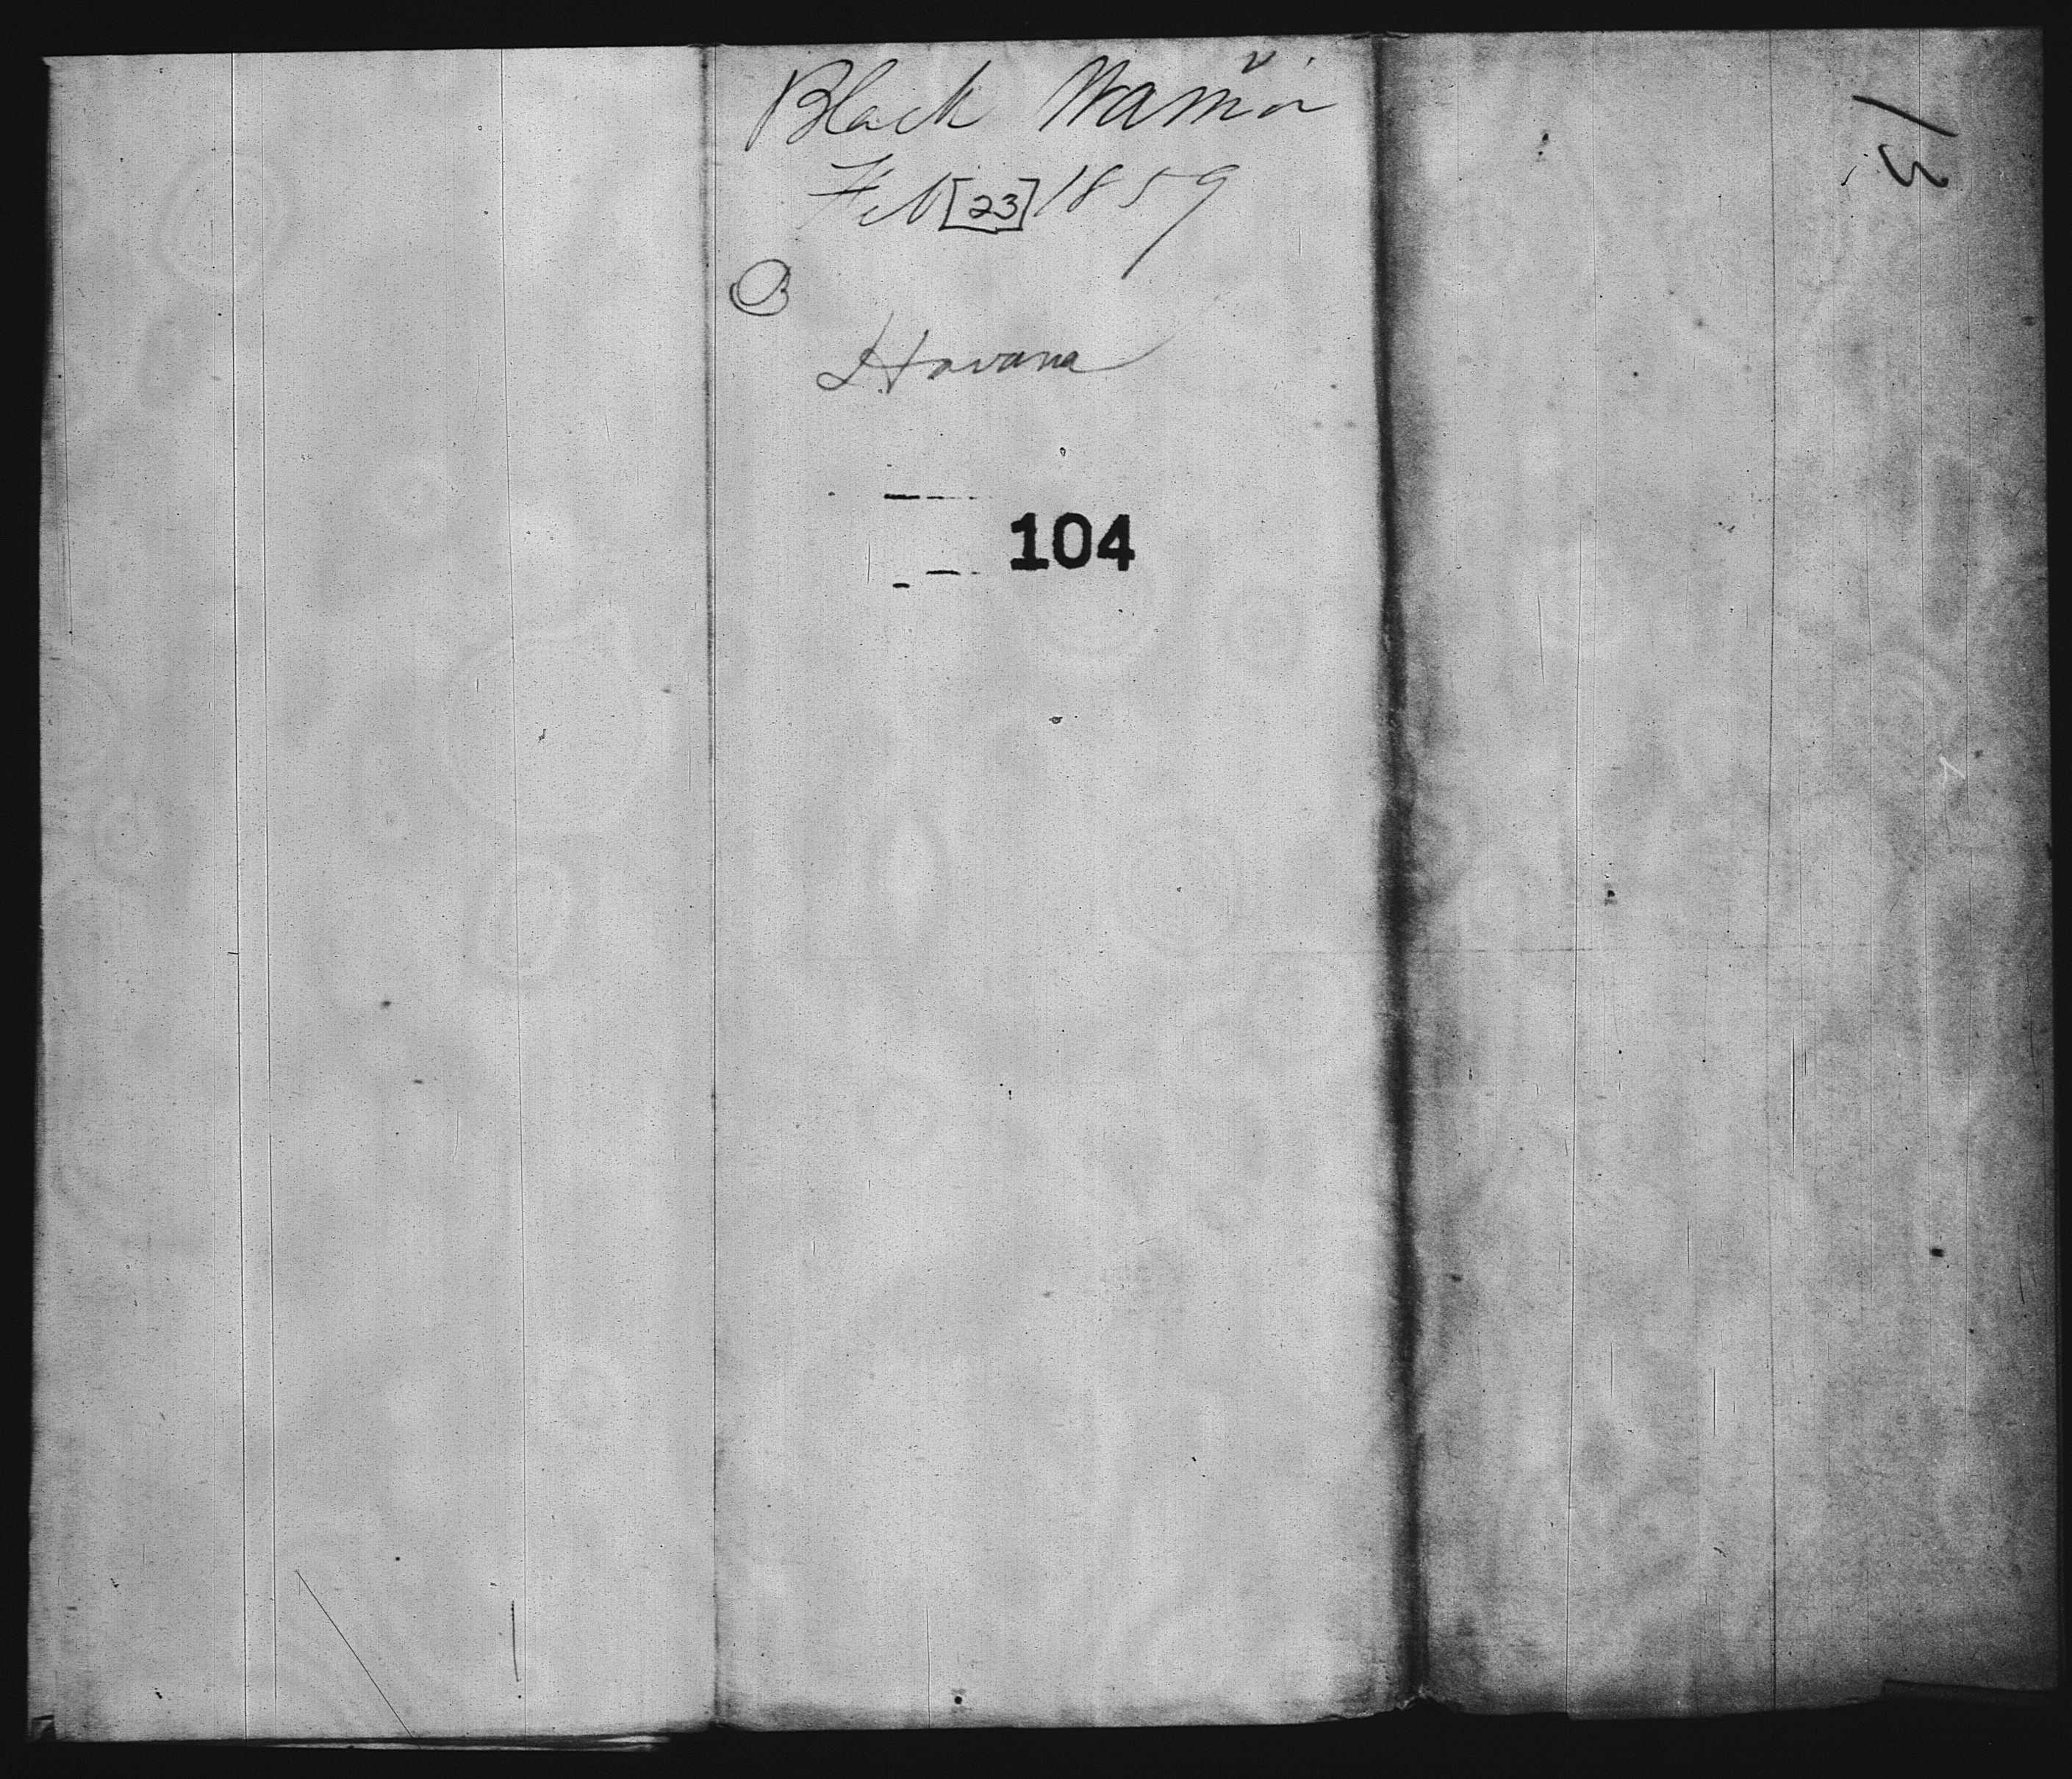 Black Warrior
Feb [23] 1859
B
Havana
104
13